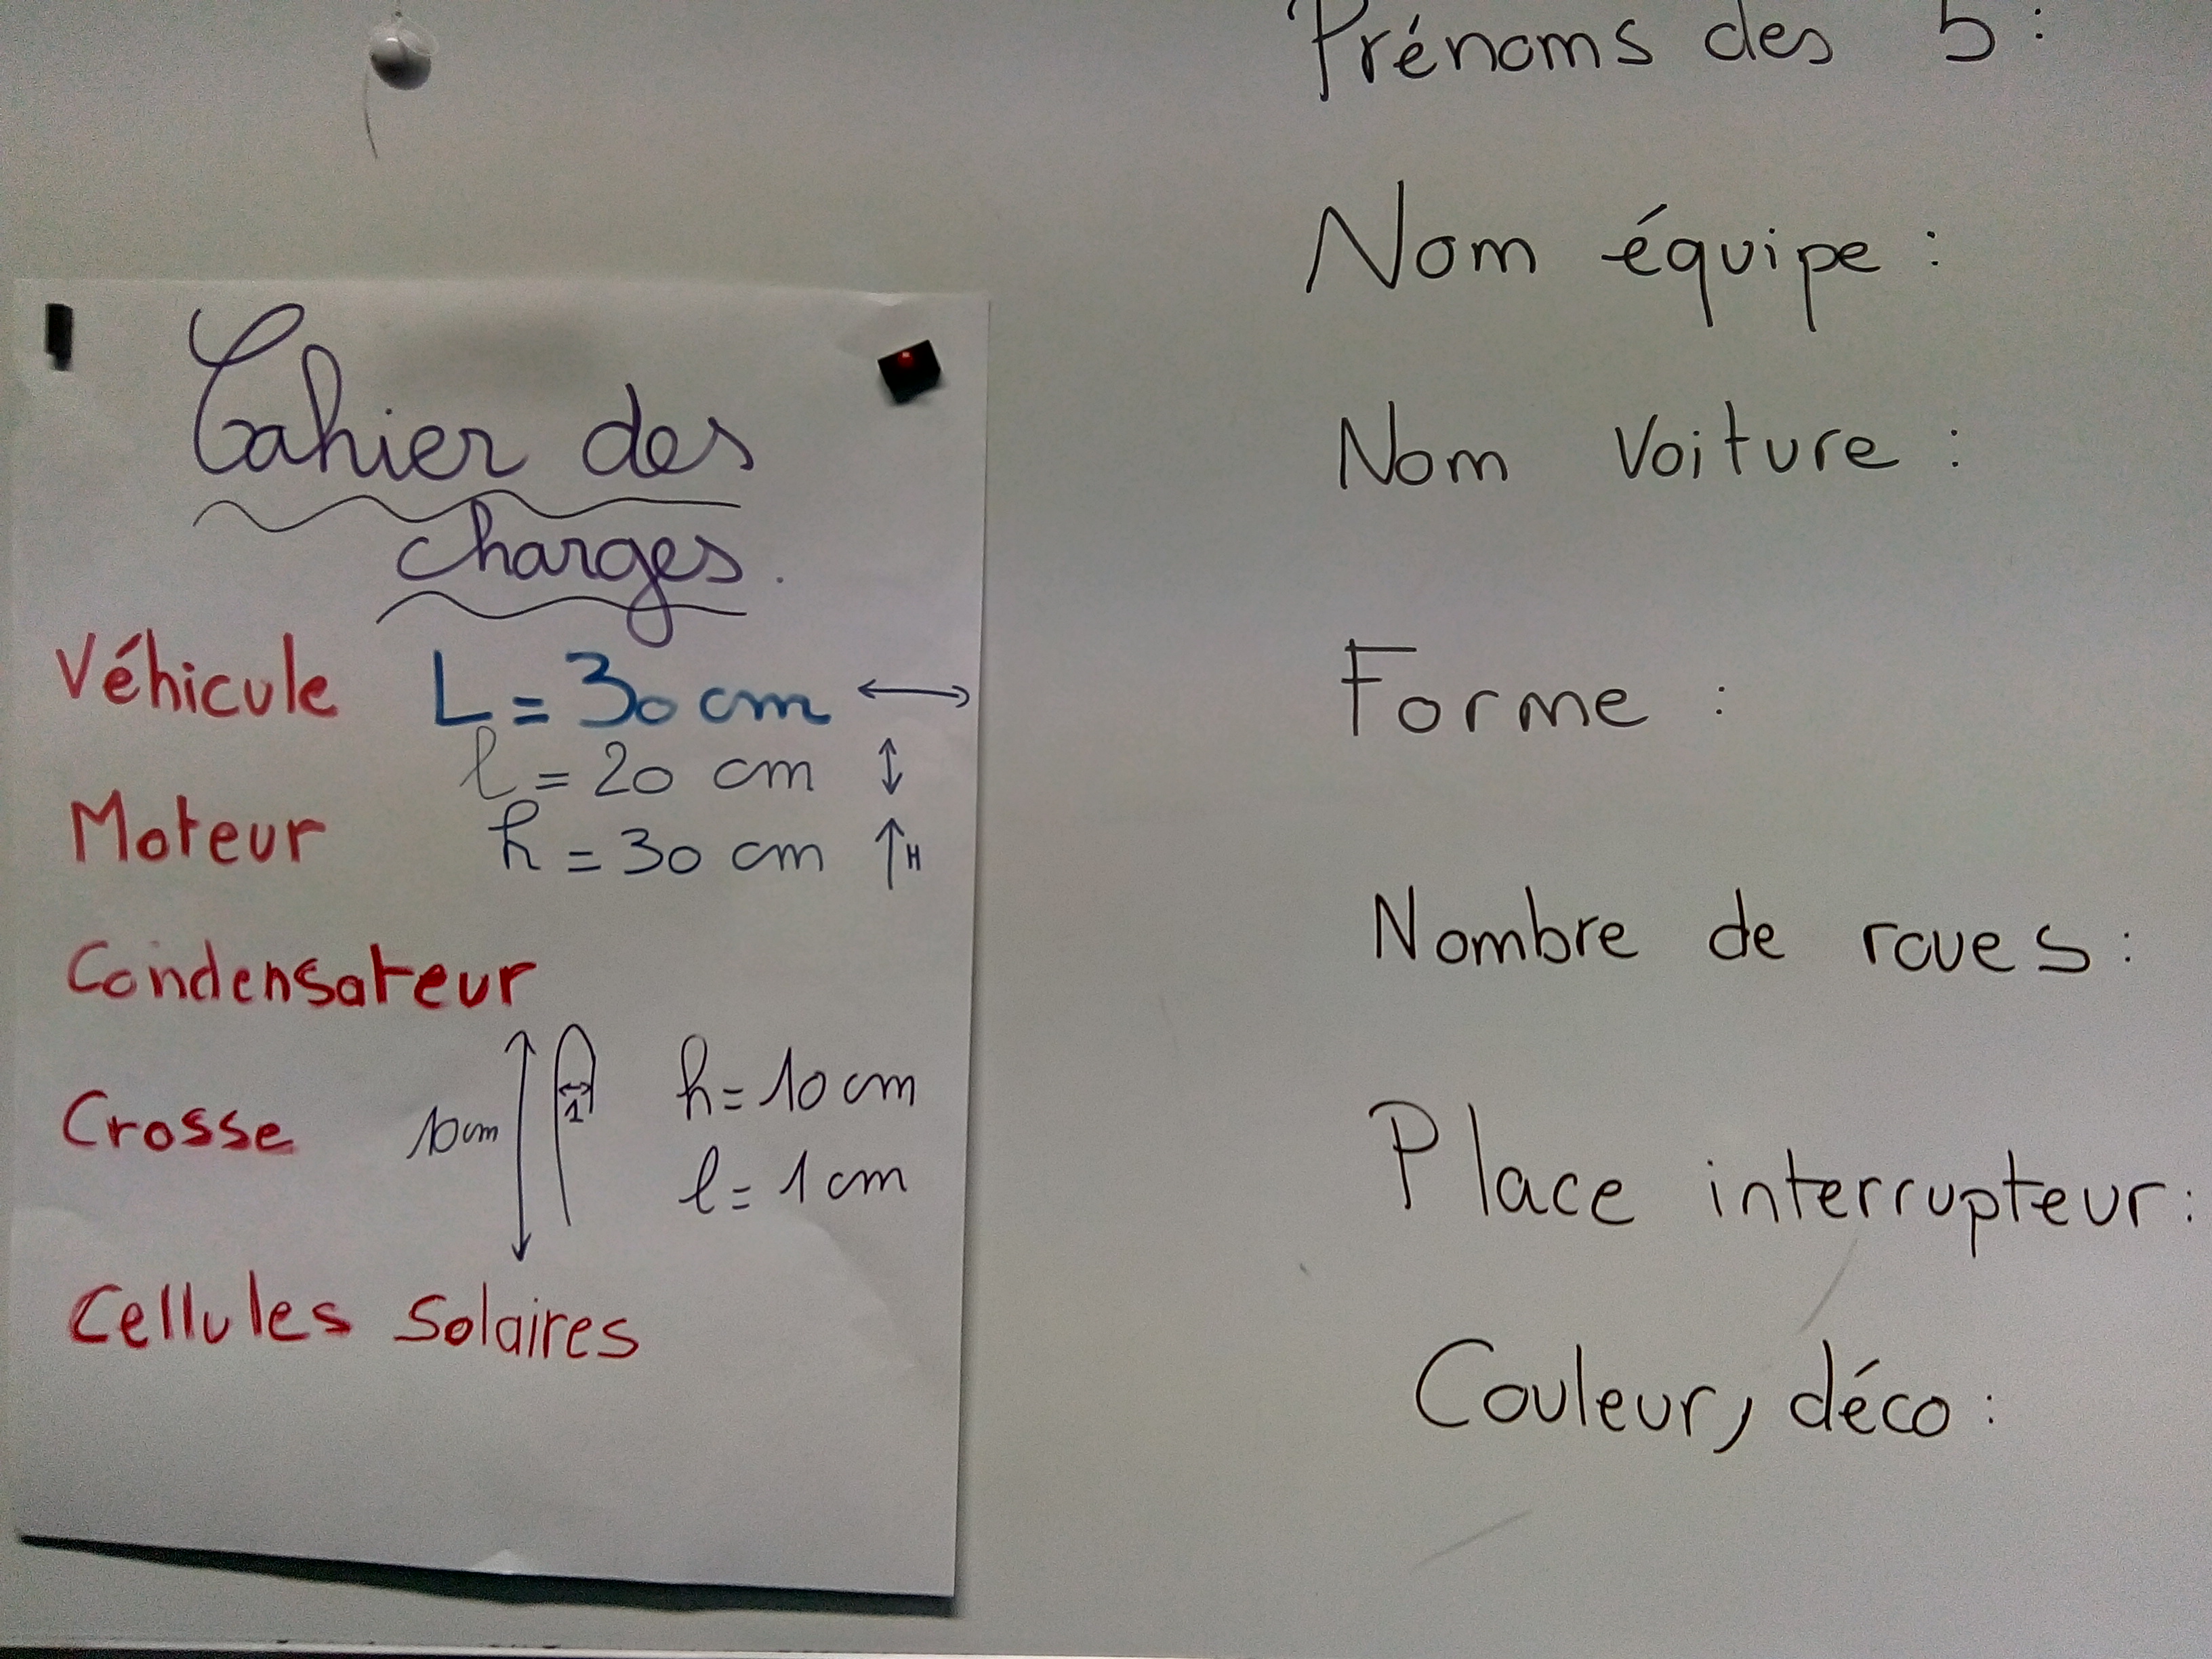 Cahier des
charges.
Véhicule L = 30 cm
l = 20 cm
Moteur h = 30 cm H
Condensateur
Crosse 10cm 1 h = 10 cm
l = 1 cm
Cellules solaires
Prénoms des 5 :
Nom équipe :
Nom Voiture :
Forme :
Nombre de roues :
Place interrupteur :
Couleur, déco :